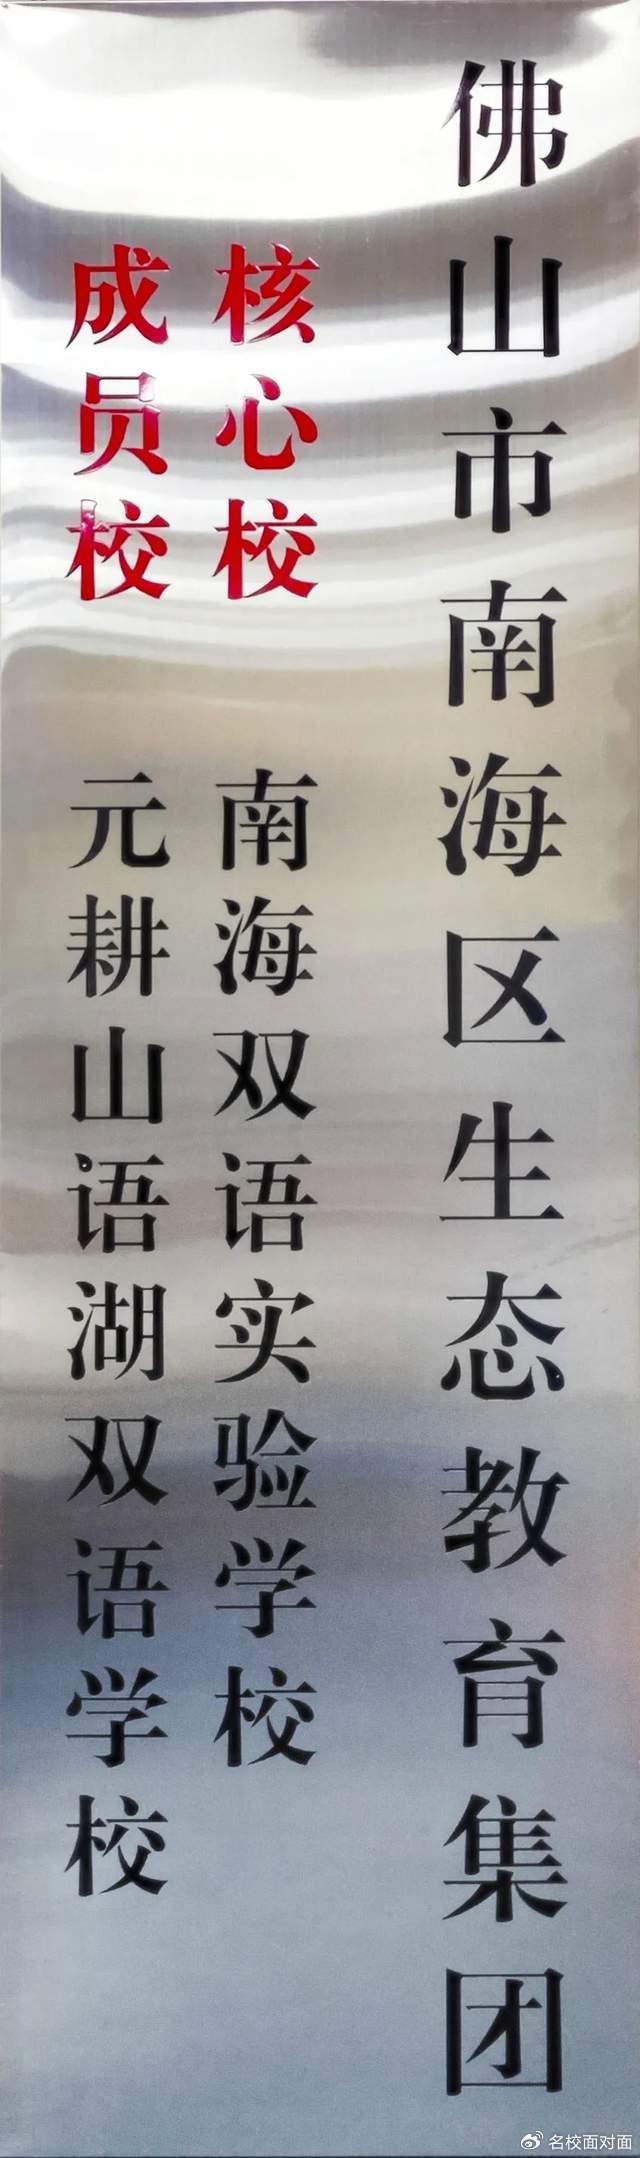 佛山市南海区生态教育集团
核心校 南海双语实验学校
成员校 元耕山语湖双语学校
名校面对面